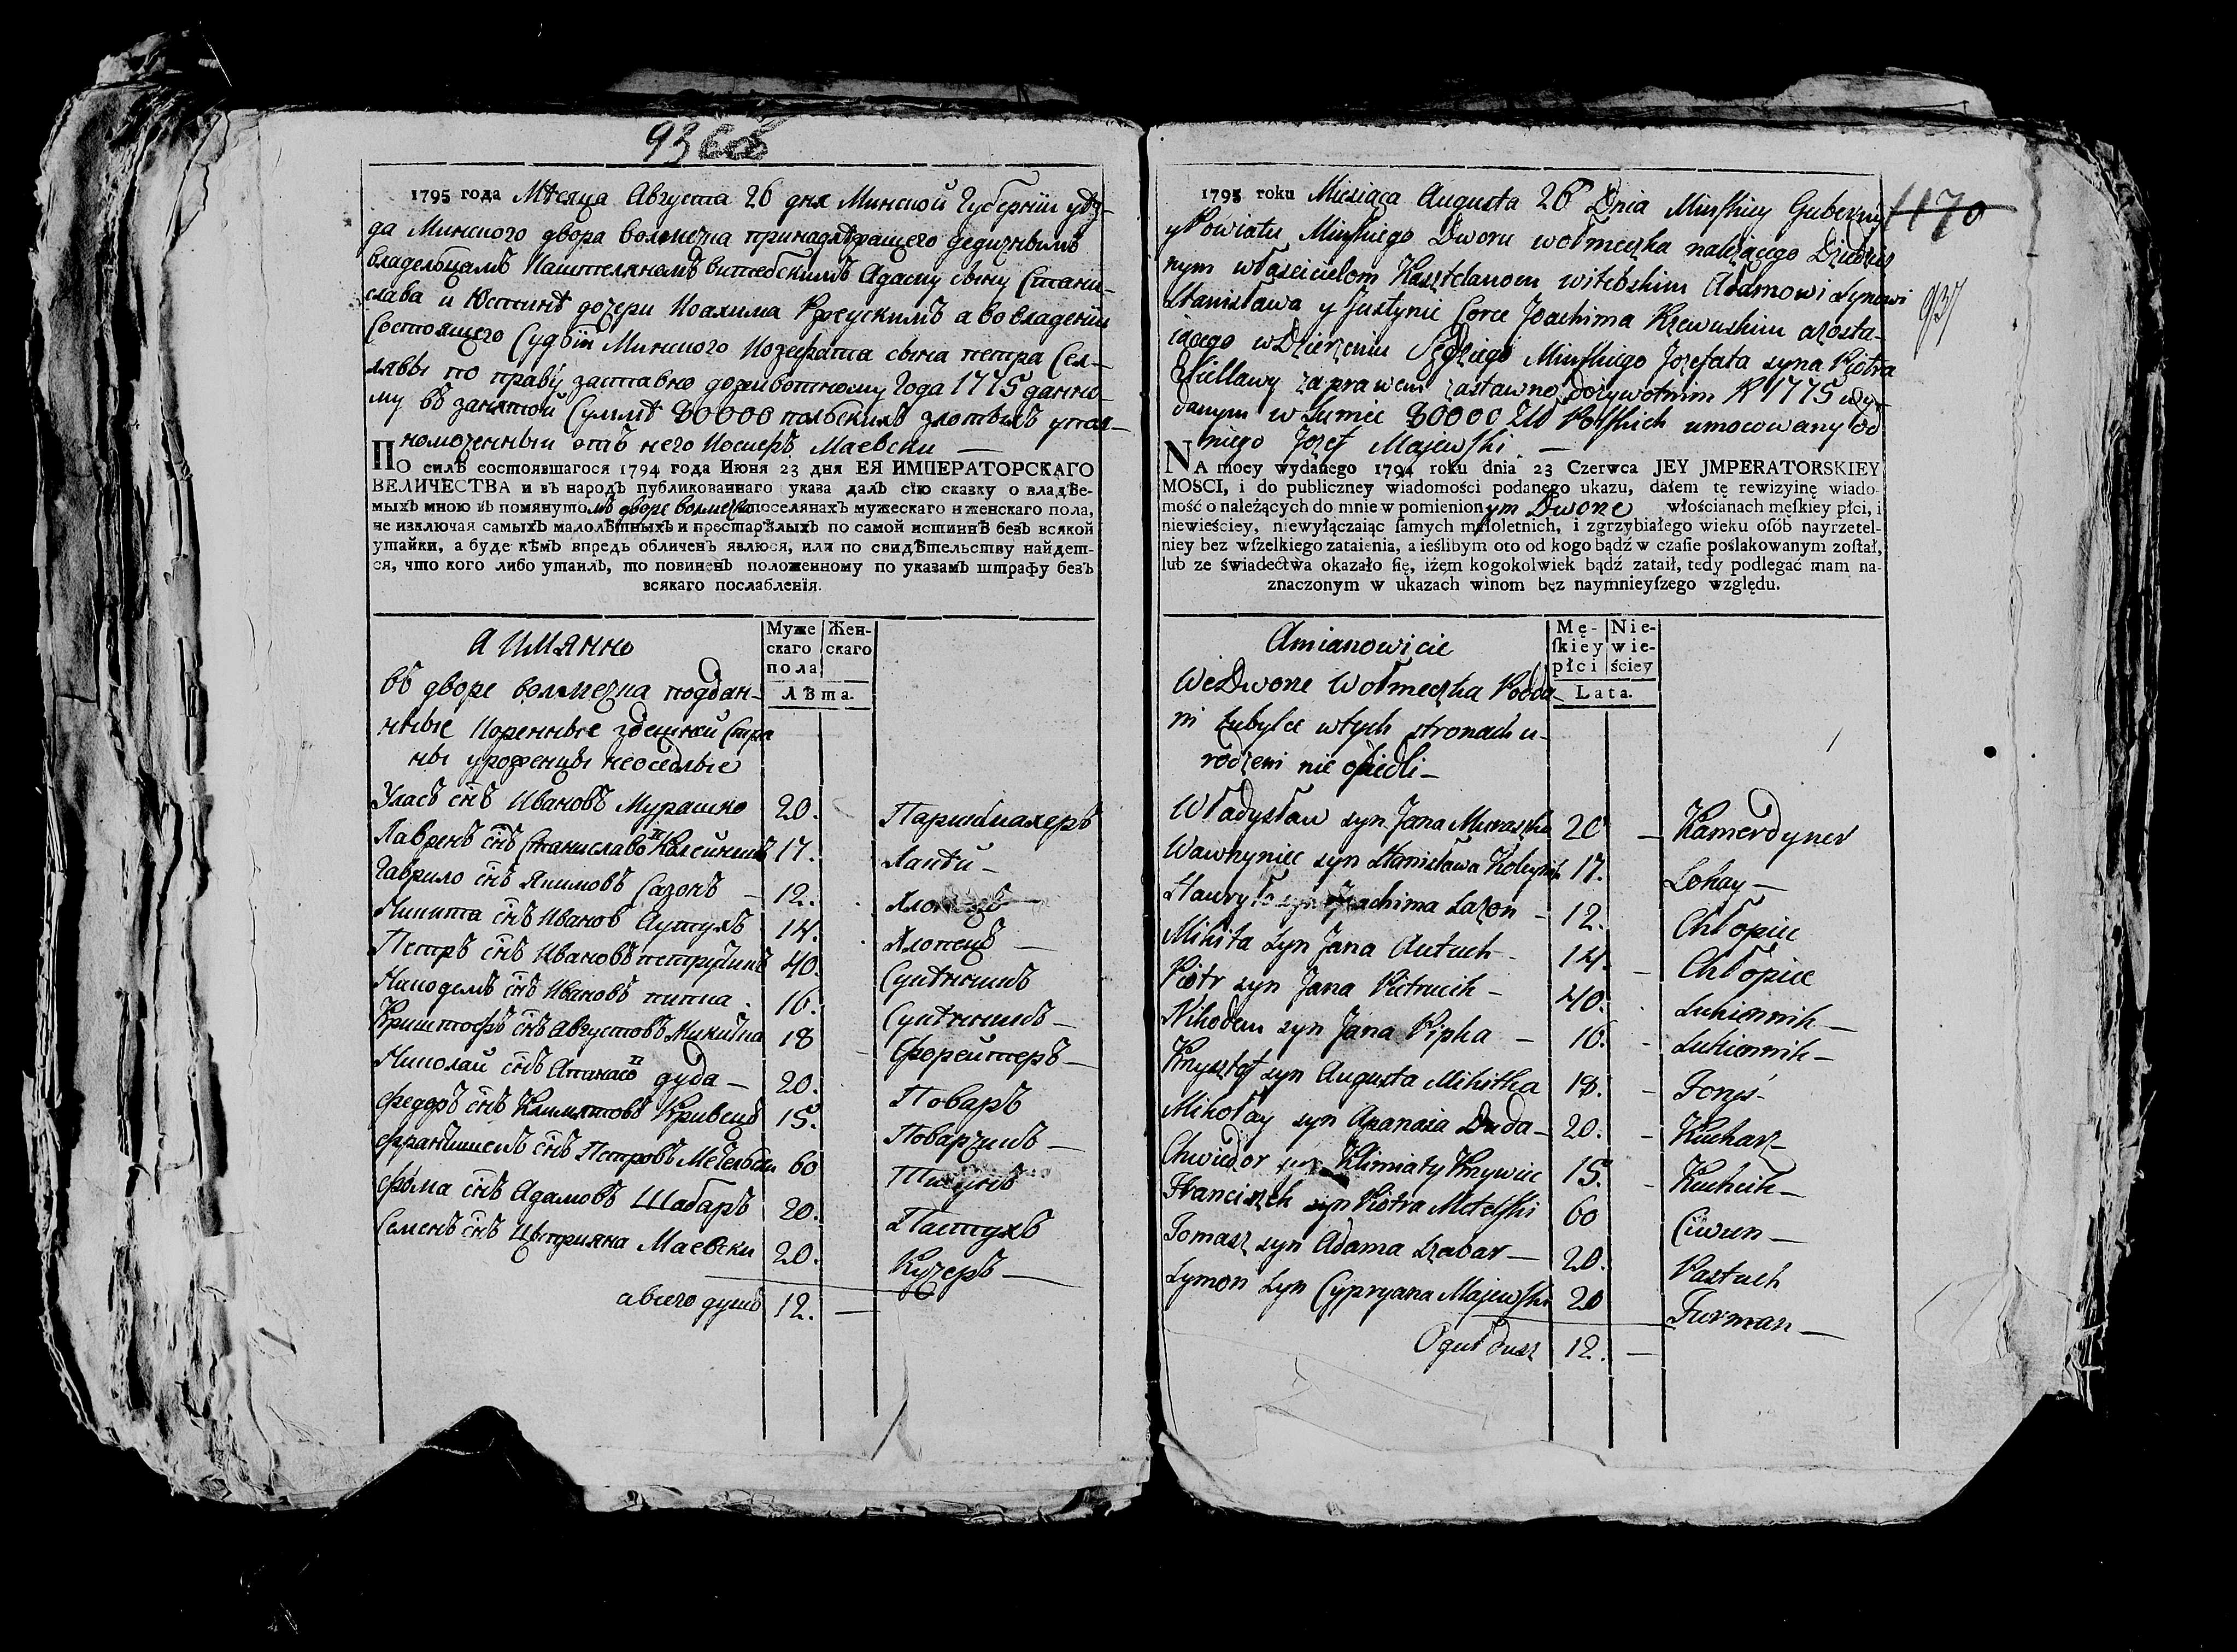 936
1795 года Мѣсяца Августа 26 дня Минской Губерніи уѣз-
да Минского двора воломечка принадлѣжащего дедичнымъ
владельцамъ Каштелянамъ витебскимъ Адаму сыну Стани-
слава и Юстинѣ дочери Иоахима Крeускимъ а во владеніи
Состоящего Судьіи Минского Иозефата сына петра Сел-
лявы по праву заставно доживотному Года 1775 данно-
му въ занятой Суммѣ 80000 польскихъ злотыхъ упол-
номоченный отъ него Иосифъ Маевски —
ПО силѣ состоявшагося 1794 года Июня 23 дня ЕЯ ИМПЕРАТОРСКАГО
ВЕЛИЧЕСТВА и въ народъ публикованнаго указа далъ сїю сказку о владѣе-
мыхъ мною въ помянутомъ дворе воломечка поселянахъ мужескаго и женскаго пола,
не изключая самыхъ малолѣтныхъ и престарѣлыхъ по самой истиннѣ безъ всякой
утайки, а буде кѣмъ впредь обличенъ явлюся, или по свидѣтельству найдет-
ся, что кого либо утаилъ, то повиненъ положенному по указамъ штрафу безъ
всякаго послабленїя.
А имянно
Муже
скаго
пола
Жен-
скаго
Лѣта.
въ дворе воломечка поддан-
нные коренные здешней стра
ны уроженцы неоседлые
Уласъ снъ Ивановъ Мурашко 20. Парикмахеръ
Лавренъ снъ Станиславовъ Колейникъ 17. Лакѣй —
Гаврило снъ Якимовъ Сазонъ — 12. Хлопецъ —
Микита снъ Иванов Аутухъ 14. Хлопецъ —
Петръ снъ Ивановъ петручикъ 40. Сукѣнникъ
Никодемъ снъ Ивановъ пипка . 16. Сукѣнникъ —
Криштофъ снъ Августовъ Микитка 18 Форейтеръ —
Николай снъ Апанасовъ дуда — 20. Поваръ
Федоръ снъ Климятовъ Кривецъ 15. Поварчикъ —
Францишекъ снъ Петровъ Метельски 60 Тивунъ
Фома снъ Адамовъ Шабаръ 20. Пастухъ
Семенъ снъ Циприяна Маевски 20. Кучеръ —
авсего душъ 12. —
1170
937
1795 roku Miesiąca Augusta 26 Dnia Minſkiey Guberny
y Powiatu Minſkiego Dworu wołmeczka należącego Dziedzicz
nym właścicielom Kasztelanom witebskim Adamowi Synowi
Stanisława y Justynie Corce Joachima Krzewuskim azosta-
iącego w Dzierżeniu Sędziego Minſkiego Jozefata syna Piotra
Siellawy za prawem zastawno dożywotnim R 1775 wy-
danym w Sumie 80000 Złł Polſkich umocowany od
niego Jozef Majewſki. —
NA mocy wydanego 1794 roku dnia 23 Czerwca JEY JMPERATORSKIEY
MOSCI, i do publiczney wiadomości podanego ukazu, dałem tę rewizyinę wiado-
mość o należących do mnie w pomienionym Dworze włościanach męſkiey płci, i
niewieściey, niewyłączaiąc ſamych małoletnich, i zgrzybiałego wieku oſób nayrzetel-
niey bez wſzelkiego zataienia, a ieślibym oto od kogo bądź w czaſie poślakowanym zoſtał,
lub ze świadectwa okazało ſię, iżem kogokolwiek bądź zataił, tedy podlegać mam na-
znaczonym w ukazach winom bez naymnieyſzego względu.
Amianowicie
Mę-
ſkiey
płci
Nie-
wie-
ściey
Lata.
WeDworze Wołmeczka Podda-
ni tubylce wtych stronach u-
rodzeni nie osiedli —
Władysław syn Jana Muraszka 20 — Kamerdyner
Wawrzyniec syn Stanisława Koleynik 17. Lokay —
Hawryło syn Joachima Sazon — 12. Chłopiec
Mikita Syn Jana Autuch — 14. — Chłopiec
Piotr syn Jana Pietrucik — 40. Sukiennik —
Nikodem syn Jana Pipka — 16. — Sukiennik —
Krzysztof syn Augusta Mikitka 18. — Foryś —
Mikołay syn Apanasa Duda — 20. — Kucharz
Chwiedor syn Klimiaty Krzywiec 15. — Kuchcik —
Franciszek syn Piotra Metelſki 60 Ciwun —
Tomasz syn Adama Szabar — 20. Pastuch
Symon Syn Cypryana Majewſki 20 Furman —
Oguł dusz 12. —